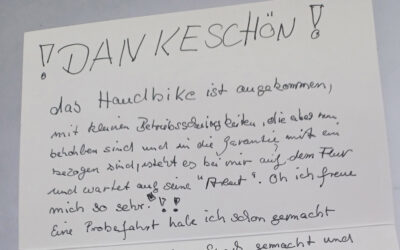 ! DANKESCHÖN !
das Handbike ist angekommen,
mit kleinen Betriebsschwierigkeiten, die aber nun
behoben sind und in die Garantie mit ein
bezogen sind, steht es bei mir auf dem Flur
und wartet auf seine "Arbeit". Oh ich freue
mich so sehr. !!
Eine Probefahrt habe ich schon gemacht
gemacht und